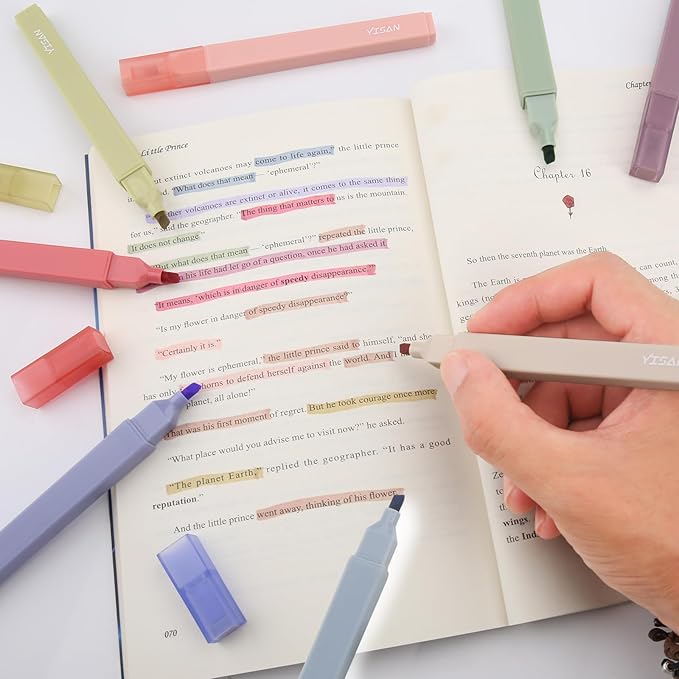 YISAN
YISAN
Little Prince
extinct volcanoes may come to life again," the little prince
"What does that mean — 'ephemeral'?"
volcanoes are extinct or alive, it comes to the same thing
for us," said the geographer. "The thing that matters to us is the mountain.
It does not change."
"But what does that mean — 'ephemeral'?" repeated the little prince,
in his life had let go of a question, once he had asked it
"It means, 'which is in danger of speedy disappearance.'"
"Is my flower in danger of speedy disappearance?"
"Certainly it is."
"My flower is ephemeral," the little prince said to himself, "and she
has only thorns to defend herself against the world. And I
planet, all alone!"
That was his first moment of regret. But he took courage once more.
"What place would you advise me to visit now?" he asked.
"The planet Earth," replied the geographer. "It has a good
reputation."
And the little prince went away, thinking of his flower.
070
Chapter
Chapter 16
So then the seventh planet was the Earth.
The Earth is
can count,
kings
YISAN
wings
the Ind